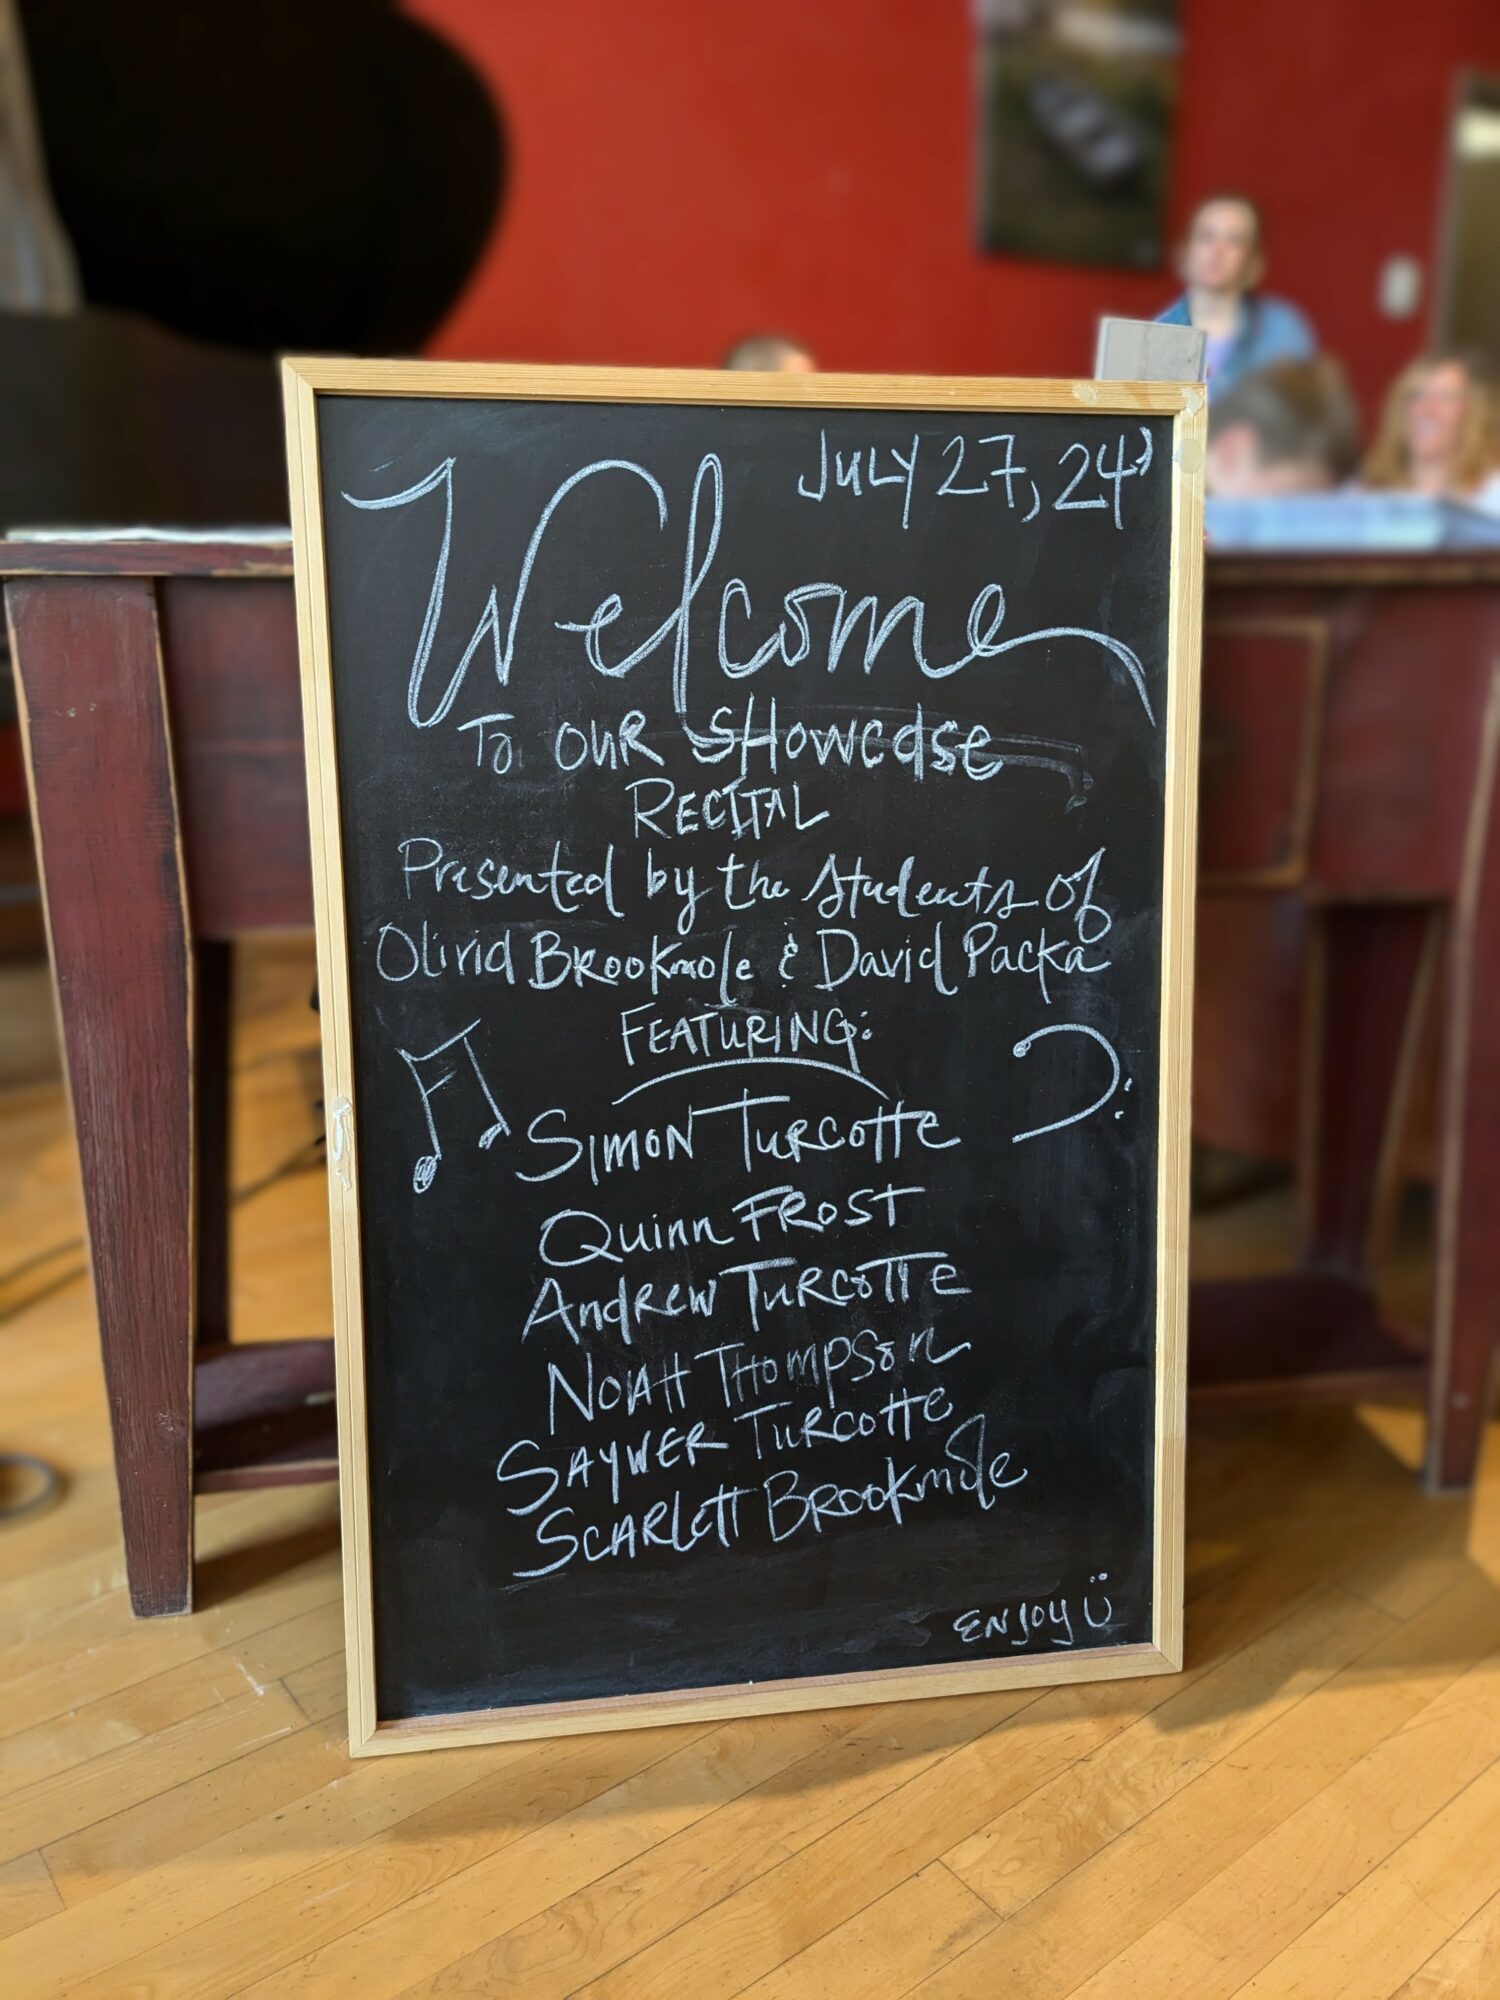 JULY 27, 24'
Welcome
To OUR SHowcase
RECITAL
Presented by the students of
Olivia Brookmole & David Packa
FEATURING:
SIMON TURCOTTE
Quinn FROST
Andrew TURCOTTE
NOAH THOMPSON
SAYWER TURCOTTE
SCARLETT BROOKMOLE
ENJOY Ü